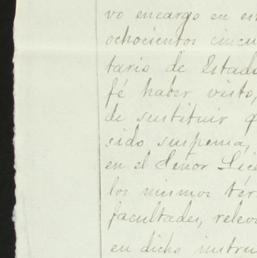 vo encargo en es
ochocientos cincu
tario de Estad
fé haber visto,
de sustituir q
sido suspensa,
en el Señor Lice
los mismos tér
facultades, relev
en dicho instru